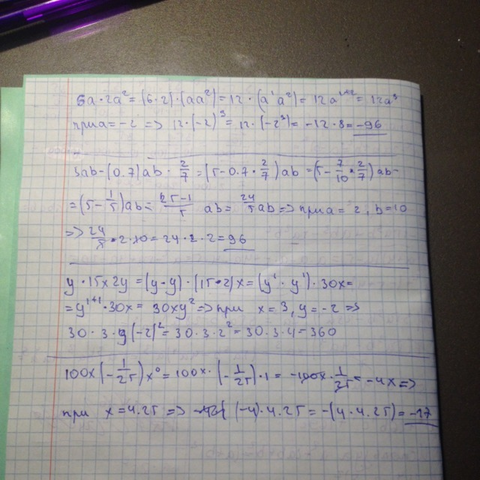 6a·2a² = (6·2)·(aa²) = 12·(a¹a²) = 12a¹⁺² = 12a³
при a = -2 => 12·(-2)³ = 12·(-2³) = -12·8 = -96
5ab-(0.7)ab·2/7 = (5-0.7·2/7)ab = (5-7/10·2/7)ab=
=(5-1/5)ab = 25-1/5 ab = 24/5 ab => при a = 2, b=10
=> 24/5·2·10 = 24·2·2 = 96
y·15x2y = (y·y)·(15·2)x = (y¹·y¹)·30x =
= y¹⁺¹·30x = 30xy² => при x = 3, y = -2 =>
30·3·(-2)² = 30·3·2² = 30·3·4 = 360
100x(-1/25)x⁰ = 100x·(-1/25)·1 = -100x·1/25 = -4x =>
при x = 4.25 => (-4)·4.25 = -(4·4.25) = -17